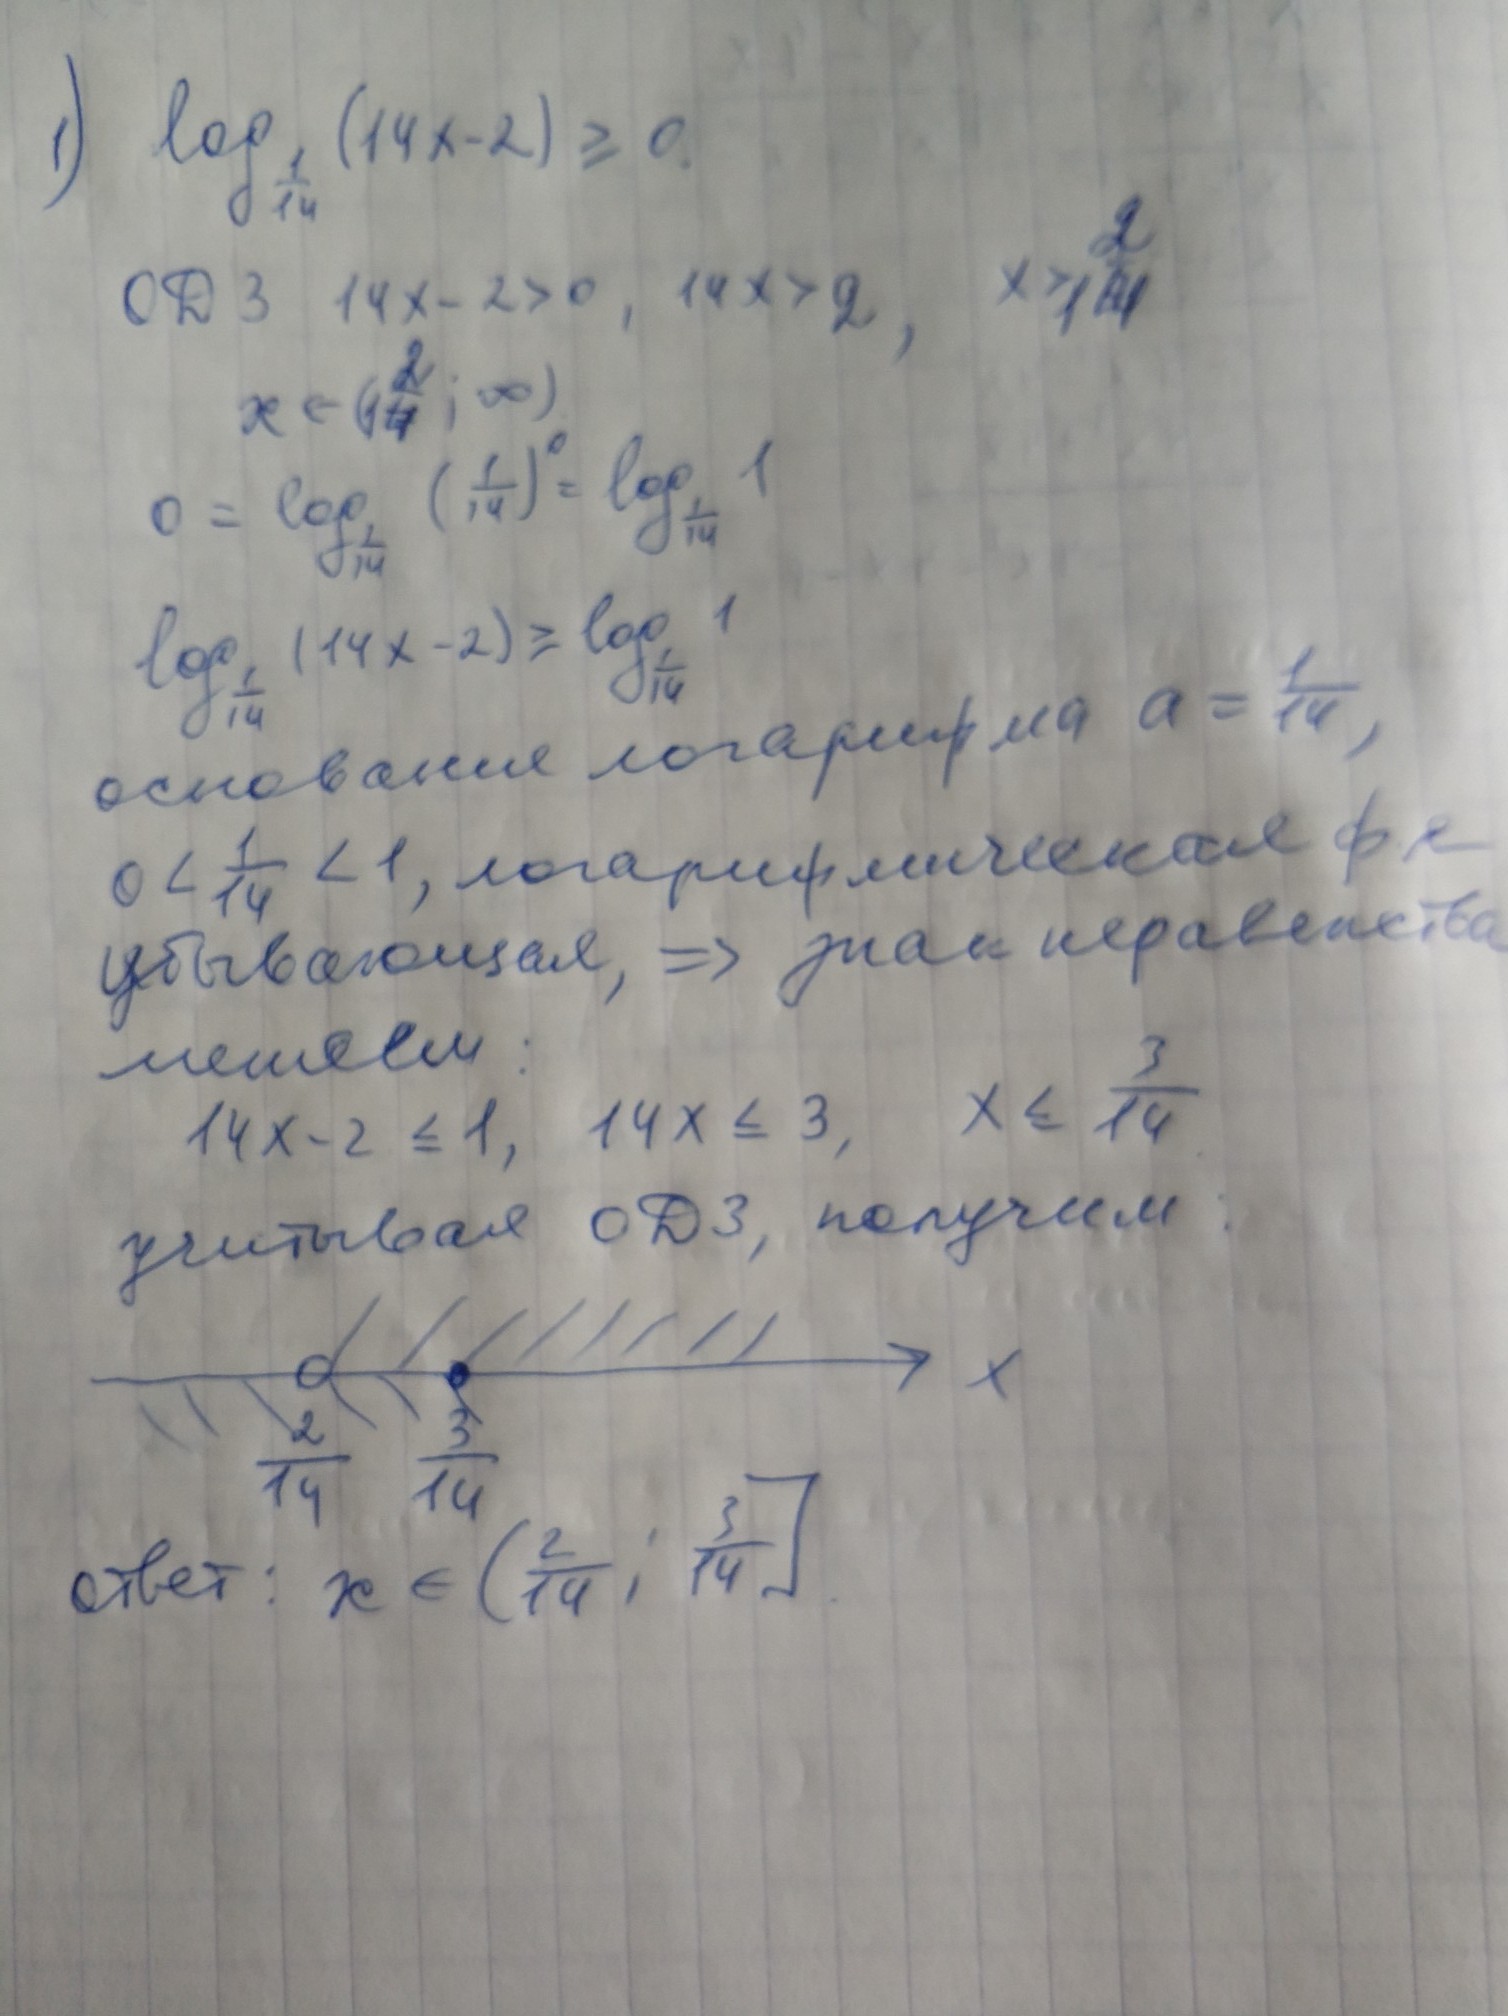 1) log_{1/14} (14x-2) ≥ 0.
ОДЗ 14x-2>0, 14x>2, x>2/14
x∈(2/14; ∞)
0 = log_{1/14} (1/14)^0 = log_{1/14} 1
log_{1/14} (14x-2) ≥ log_{1/14} 1
основание логарифма a = 1/14,
0 < 1/14 < 1, логарифмическая ф-я
убывающая, => знак неравенства
меняем:
14x-2 ≤ 1, 14x ≤ 3, x ≤ 3/14.
учитывая ОДЗ, получим:
x
2/14 3/14
ответ: x ∈ (2/14; 3/14].